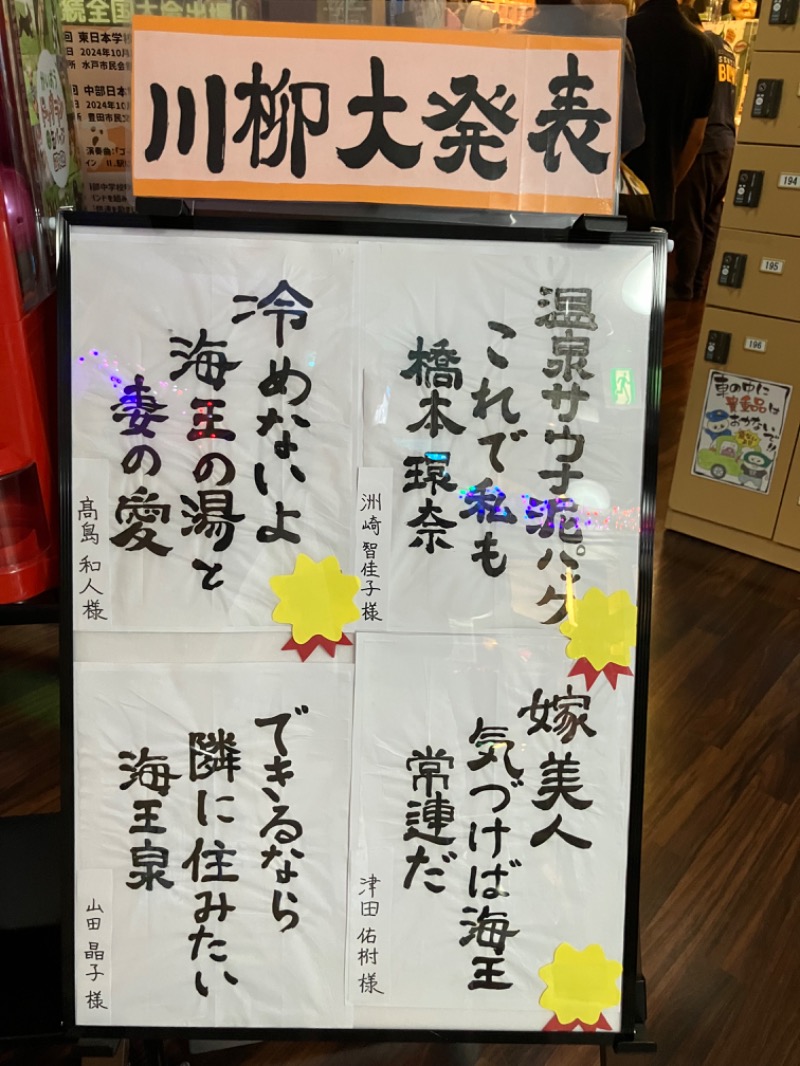 川柳大発表
温泉サウナ泥パック
これで私も
橋本環奈
洲崎 智佳子 様
冷めないよ
海王の湯と
妻の愛
髙島 和人 様
嫁美人
気づけば海王
常連だ
津田 佑樹 様
できるなら
隣に住みたい
海王泉
山田 晶子 様
続全国大会出場
東日本学校
2024年10月
水戸市民会館
中部日本
2024年10
豊田市民文
194
195
196
車の中に
貴重品は
おかないで!!